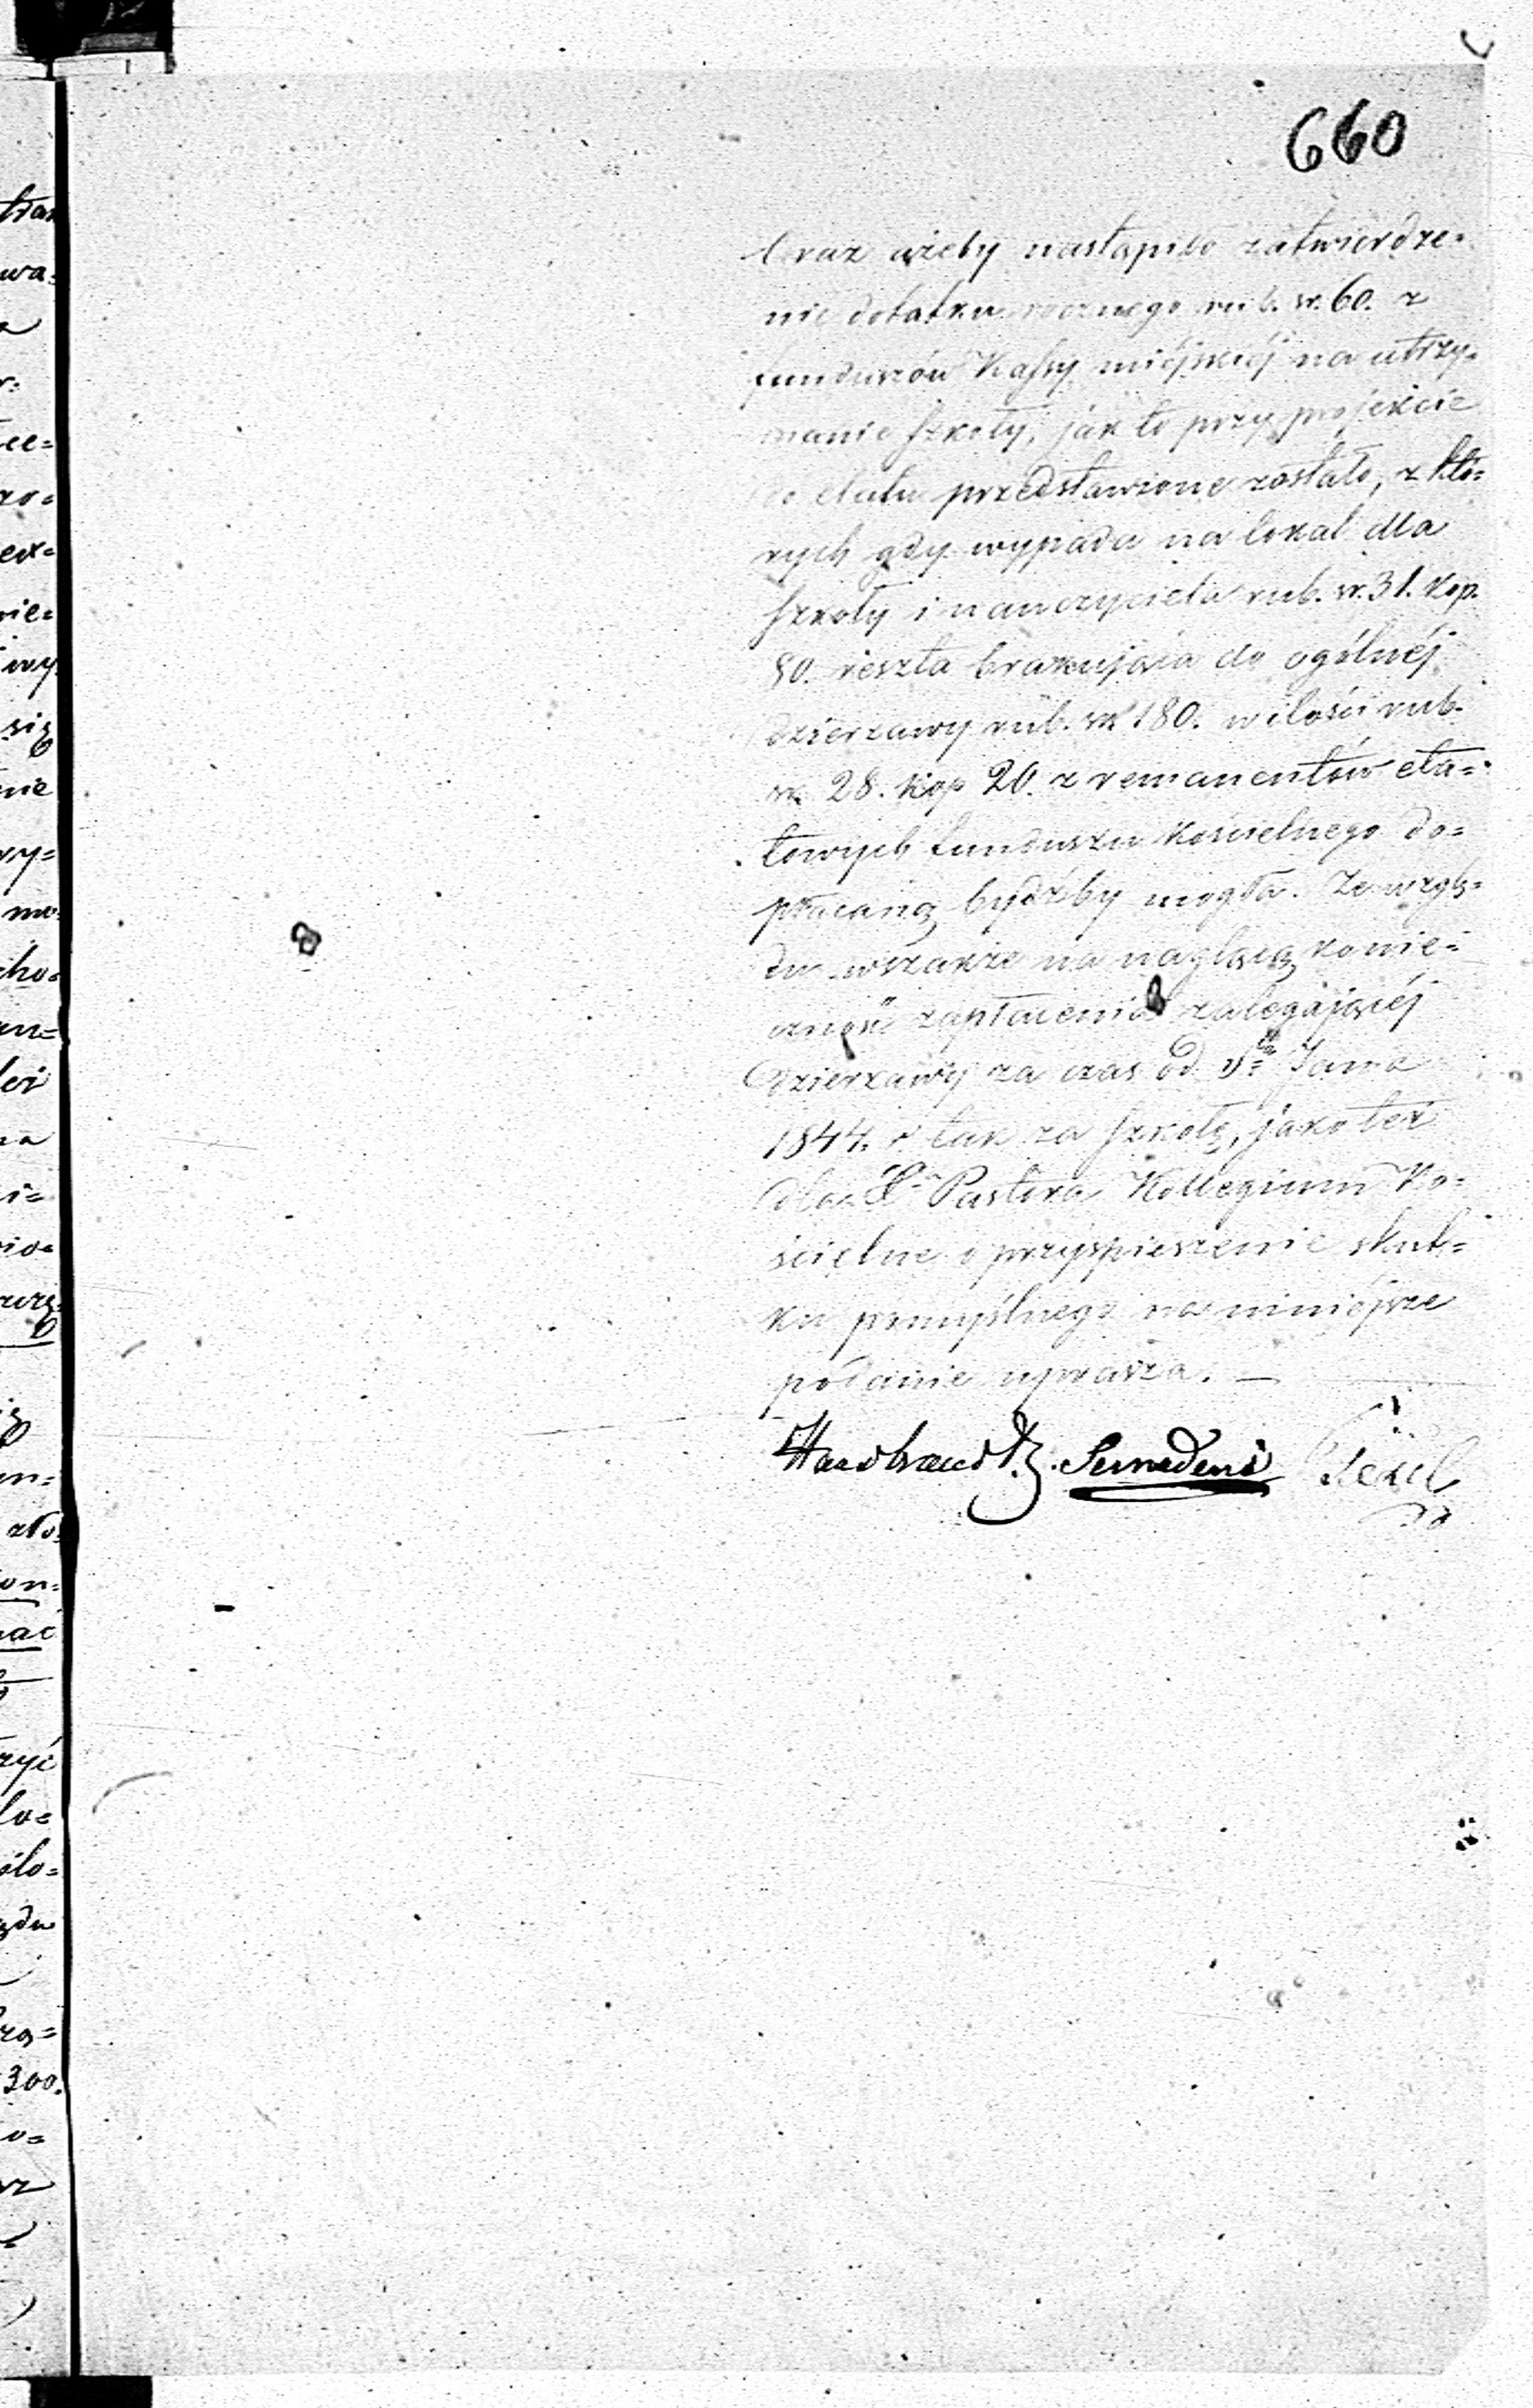 660
Oraz ażeby nastąpiło zatwierdze=
nie dodatku rocznego rub. sr. 60. z
funduszów Kassy miéjskiéj na utrzy=
manie szkoły, jak to przy projekcie
do etatu przedstawione zostało, z któ=
rych gdy wypada na lokal dla
szkoły i nauczyciela rub. sr. 31. kop.
80. reszta brakująca do ogólnéj
dzierzawy rub. sr. 180. w ilości rub.
sr. 28. kop 20. z remanentów eta=
towych funduszu Kościelnego do=
płacaną bydźby mogła. Ze wzglę=
du wszakże na naglącą konie=
czność zapłacenia zalegającéj
dzierzawy za czas od Sgo Jana
1844. r tak za szkołę, jako też
dla X. Pastora Kollegium Ko=
ścielne o przyspieszenie skut=
ku pomyślnego na niniéjsze
podanie uprasza. —
Semadeni
tran
wa=
r=
ee=
zo=
ex=
wie=
wy
się
nie
wy=
mo=
cho=
an=
na
i=
nio=
on=
nać
zyć
lo=
ilo=
ądu
300.
o=